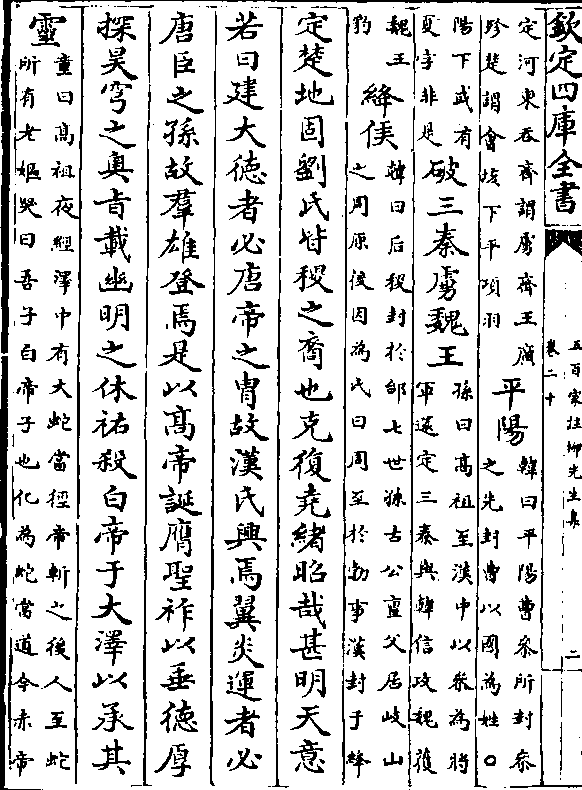 欽定四庫全書
五百家注柳先生集
卷二十
二
定河東吞齊謂虜齊王廣
殄楚謂會垓下平項羽
平陽
韓曰平陽曹參所封參
之先封曹以國為姓○
陽下或有
夏字非是
破三秦虜魏王
孫曰高祖至漢中以參為將
軍還定三秦與韓信攻魏獲
魏王
豹
絳侯
韓曰后稷封於邰七世孫古公亶父居岐山
之周原後因為氏曰周至於勃事漢封于絳
定楚地固劉氏皆稷之裔也克復堯緒昭哉甚明天意
若曰建大德者必唐帝之胄故漢氏興焉翼炎運者必
唐臣之孫故羣雄登焉是以高帝誕膺聖祚以垂德厚
探昊穹之奥旨載幽明之休祐殺白帝于大澤以承其
靈
童曰高祖夜經澤中有大蛇當徑帝斬之後人至蛇
所有老嫗哭曰吾子白帝子也化為蛇當道今赤帝